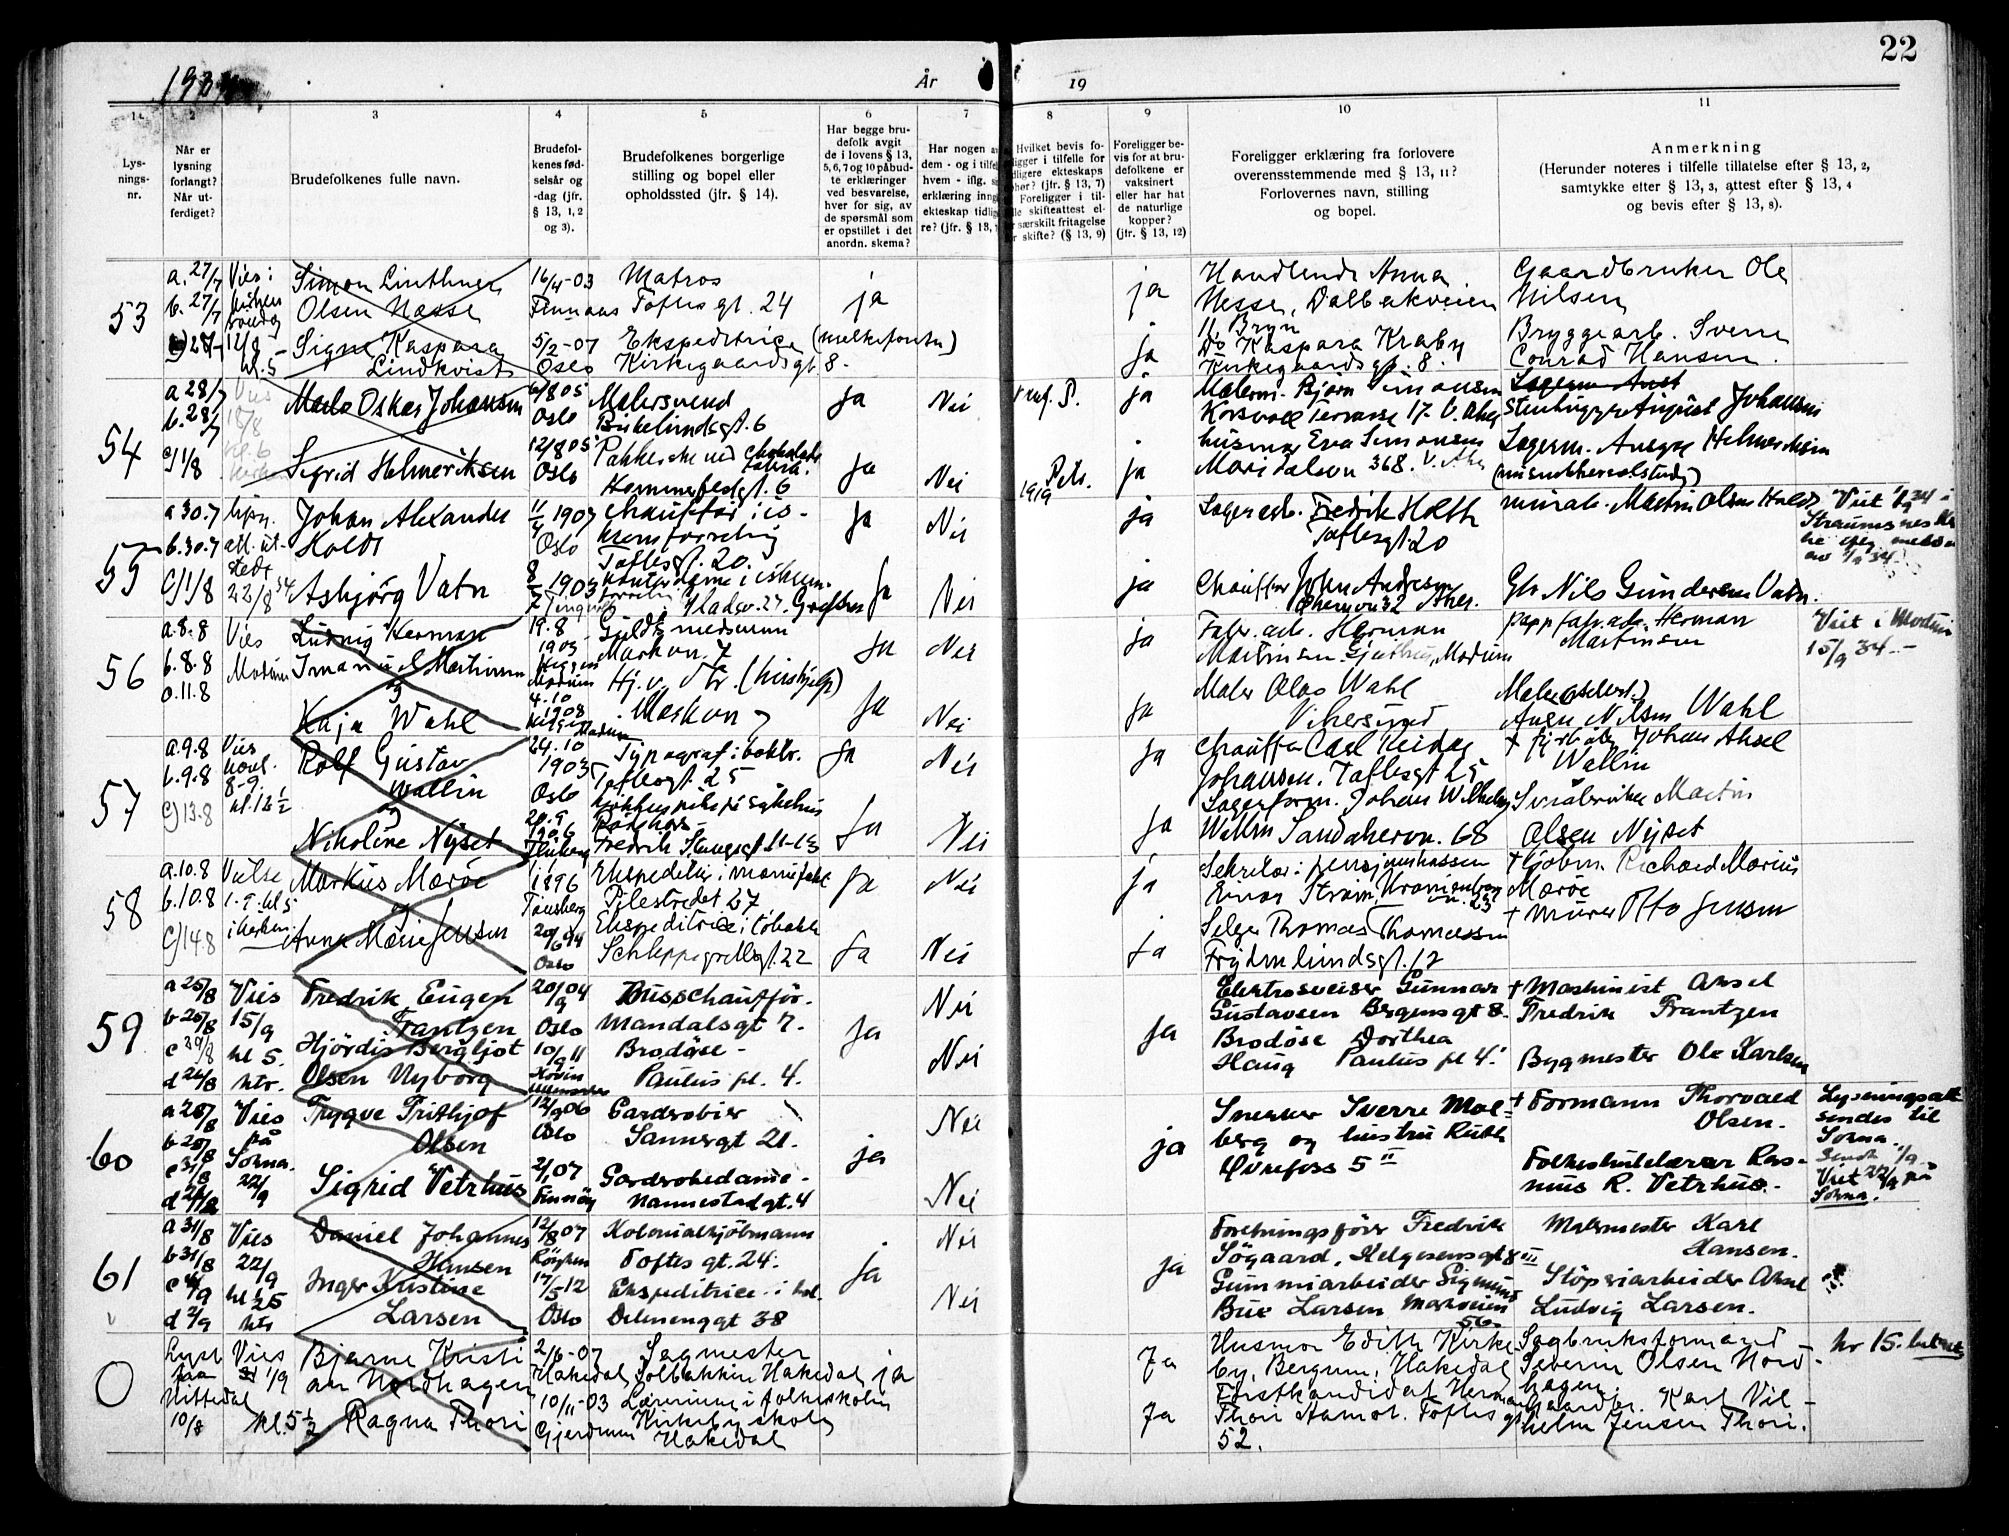 22
1934
År
19
1a
2
3
4
5
6
7
8
9
10
11
Lys-
nings-
nr.
Når er
lysning
forlangt?
Når ut-
ferdiget?
Brudefolkenes fulle navn.
Brudefol-
kenes fød-
selsår og
-dag (jfr.
§ 13, 1, 2
og 3).
Brudefolkenes borgerlige
stilling og bopel eller
opholdssted (jfr. § 14).
Har begge bru-
defolk avgit
de i lovens § 13,
5, 6, 7 og 10 påbud-
te erklæringer
ved besvarelse,
hver for sig, av
de spørsmål som
er opstillet i det
anordn. skema?
Har nogen a
dem - og i tilfel
hvem - iflg. s
erklæring inng
ekteskap tidlig
re? (jfr. § 13,
Hvilket bevis fo-
ligger i tilfelle for
dligere ekteskaps
hør? (jfr. § 13, 7)
Foreligger i til-
lle skifteattest el-
r særskilt fritagelse
r skifte? (§ 13, 9)
Foreligger be-
vis for at bru-
defolkene er
vaksinert
eller har hat
de naturlige
kopper?
(jfr. § 13, 12)
Foreligger erklæring fra forlovere
overensstemmende med § 13, 11?
Forlovernes navn, stilling
og bopel.
Anmerkning
(Herunder noteres i tilfelle tillatelse efter § 13, 2,
samtykke etter § 13, 3, attest efter § 13, 4
og bevis efter § 13, 8).
53
a. 27/7
b. 27/7
Vies i
kirken
12/8
kl. 5
Simon Linthner
Olsen Næsse
Signe Kaspara
Lindkvist
16/4-03
Finnaas
5/2-07
Oslo
Matros
Toftes gt. 24
Ekspeditrice (melkeforr.)
Kirkegaardsgt. 8.
ja
ja
ja
Handlende Anna
Nesse, Dalbakveien
11, Bryn
Do Kaspara Kraby
Kirkegaardsgt. 8.
Gaardbruker Ole
Nilsen
Bryggearb. Sverre
Conrad Hansen.
54
a 28/7
b. 28/7
c) 1/8
Vies
18/8
kl. 6
Oskar Johansen
Sigrid Helmeriksen
6/8 05
Oslo
12/8 05
Oslo
Malersvend
Birkelundsgt. 6
Pakkerske ved chokolade
fabrik.
Hammerfestgt. 6
ja
ja
Nei
Nei
1919
ja
ja
Malerm. Bjarn Simonsen
Korsvoll Terrasse 17. V. Aker
husmor Eva Simonsen
Maridalsvn 368. V. Aker
Stenhugger August Johansen
Lagerm. Ansgar Helmeriksen
55
a 30.7
b. 30.7
c) 1/8
lysn.
att. ut-
stedt
22/8 34
Johan Alexander
Holdt
Asbjörg Vatn
11/4 1907
Oslo
8/7 1903
Chauffør i is-
kremforretning
Toftesgt. 20.
Kontordame i iskrem-
forretn.
Gladsv. 27. Grefsen
ja
Ja
Nei
Nei
ja
ja
Lagerarb. Fredrik Holth
Toftesgt 20
Chauffør John Andresen
murarb. Martin Olsen Holdt
Gbr Nils Gundersen Vatn.
Viet 1/9 34 i
Straumsnes
56
a. 8.8
b. 8.8
c. 11.8
Vies
Modum
Ludvig Herman
Imanuel Martinsen
og
Kaja Wahl
19.8
1903
Modum
4.10
1908
Modum
Guldsmedsvenn
Markvn. 7
Hj. v. (hushjelp)
Markvn 7
Ja
Ja
Nei
Nei
ja
ja
Fabr. arb. Herman
Martinsen Gjethus, Modum
Maler Olas Wahl
Vikersund
papp fabr. arb. Herman
Martinsen
Anen Nilsen Wahl
Viet i Modum
15/9 34.-
57
a. 9.8
b. 9.8
c) 13.8
Vies
8-9.
kl. 12 1/2
Rolf Gustav
Wallin
og
Nikoline Nyset
24.10
1903
Oslo
20.9
1906
Typograf i boktr.
Toftesgt. 25
Kjøkkenpike på sykehus
Fredrik Stangsgt 11-13
Ja
Ja
Nei
Nei
ja
ja
Chauffør Carl Reidar
Johansen. Toftesgt 25
Lagerform. Johan Wilhelm
Wallin Sandakervn. 68
Johan Aksel
Wallin
Småbruker Martin
Olsen Nyset
58
a. 10.8
b. 10.8
c) 14.8
1-9 kl 5
i kirken
Markus Marøe
og
Anna Marie Jensen
1896
Tønsberg
20/6 94
Oslo
Ekspeditør i manufakt
Pilestredet 27
Ekspeditrice i tobakk
Schleppegrellsgt. 22
Ja
Ja
Nei
Nei
ja
ja
Sekretær i pensjonskassen
Einar Strøm, Kranienborg
vn. 23
Selger Thomas Thomassen
Frydenlundsgt. 12
Richard Marius
Marøe
+ Murer Otto Jensen
59
a 25/8
b 25/8
c 29/8
d 26/8
Vies
15/9
kl 5.
ktr.
Fredrik Eugen
Frantzen
Hjördis Bergljot
Olsen Nyborg
20/9 04
Oslo
10/9 11
Busschauffør.
Mandalsgt 7.
Brodøse -
Paulus pl. 4.
Ja
Nei
Nei
Ja
Elektrosveiser Gunnar
Gustavsen Bergensgt 8.
Brodöse Dorthea
Haug Paulus pl 4.
+ Maskinist Aksel
Fredrik Frantzen
Bygmester Ole Karlsen
60
a 28/8
b 28/8
c 31/8
Vies
på
Sokna.
22/9
Trygve Frithjof
Olsen
Sigrid Vetrhus
12/9 06
Oslo
2/1 07
Finnöy
Garderobier
Sannergt 21.
Garderobedame.
Mannestadgt. 4
ja
Nei
Nei
ja
Snekker Sverre Mol-
berg og hustru Ruth
Hønefoss 5 II
+ Formann Thorvald
Olsen.
Folkeskulelærar Ras-
mus R. Vetrhus.
Lysningsatt
sendes til
Sokna.
Sendt 1/9
Viet 22/9 på
Sokna.
61
a 31/8
b 31/8
c 4/9
d 2/9
Vies
22/9
kl 1 25
ktr
Daniel Johannes
Hansen
Inger Kristine
Larsen
12/8 07
Røyken
17/5 12
Oslo
Kolonialkjöbmann
Toftes gt. 24.
Ekspeditrice i kol.
Delenenggt 38
ja
Nei
Nei
ja
Forretningsförer Fredrik
Søgaard, Helgesensgt 8 III
Gummiarbeider Sigmund
Bue Larsen Markveien
56.
Malermester Karl
Hansen.
Støperiarbeider Aksel
Ludvig Larsen.
0
Lyst
paa
Nittedal
10/8
Vies
1/9
kl. 5 1/2
Bjarne Kristi
an Nordhagen
Ragna Thori
2/6-07
Hakedal
10/11-03
Gjerdrum
Sagmester
Solbakken Hakedal
Lærerinne i folkeskolen
Kirkeby skole
Hakedal
ja
Ja
Ja
Husmor Edith Kirke
by, Bergum, Hakedal
Forstkandidat Herman
Thori Hamar. Toftes gt.
52.
Sagbruksformand
Severin Olsen Nord-
hagen.
Gaardbr. Karl Vil-
helm Jensen Thori.
nr 15.